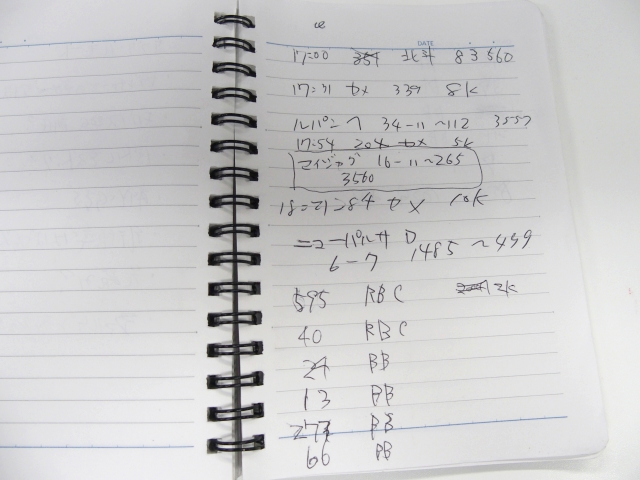 DATE
17:00 北斗 83560
17:31 セメ 339 8K
ルパン 34-11~112 3557
17:54 204 セメ 5K
マイジャグ 16-11~265
3560
18:21 284 セメ 10K
ニューパルサー D
6-7 1485~499
595 RBC 12K
40 RBC
24 BB
13 BB
277 BB
66 BB